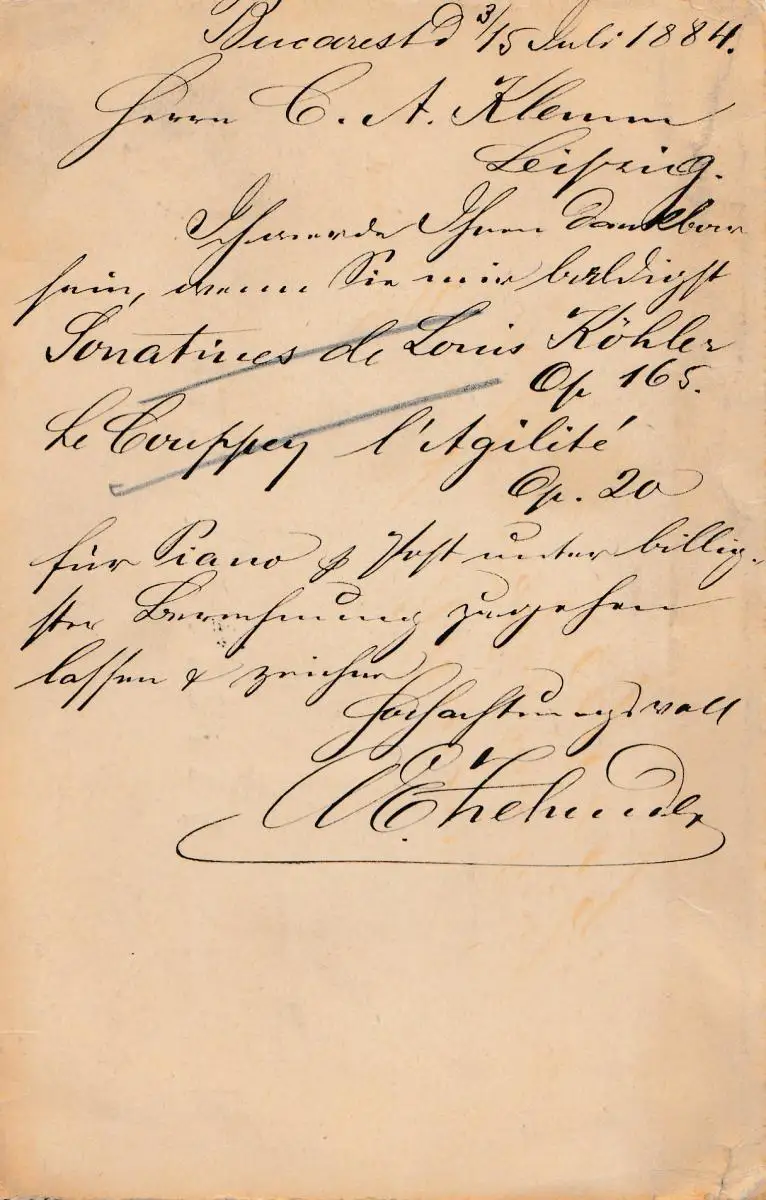 Bucarest d 3/15 Juli 1884.
Herrn C. A. Klemm
Leipzig.
Ich werde Ihnen dankbar
sein, wenn Sie mir baldigst
Sonatines de Louis Köhler
Op 165.
Le Couppey l'Agilité
Op. 20
für Piano p Post unter billig-
ster Berechnung zugehen
lassen & zeichne
Hochachtungsvoll